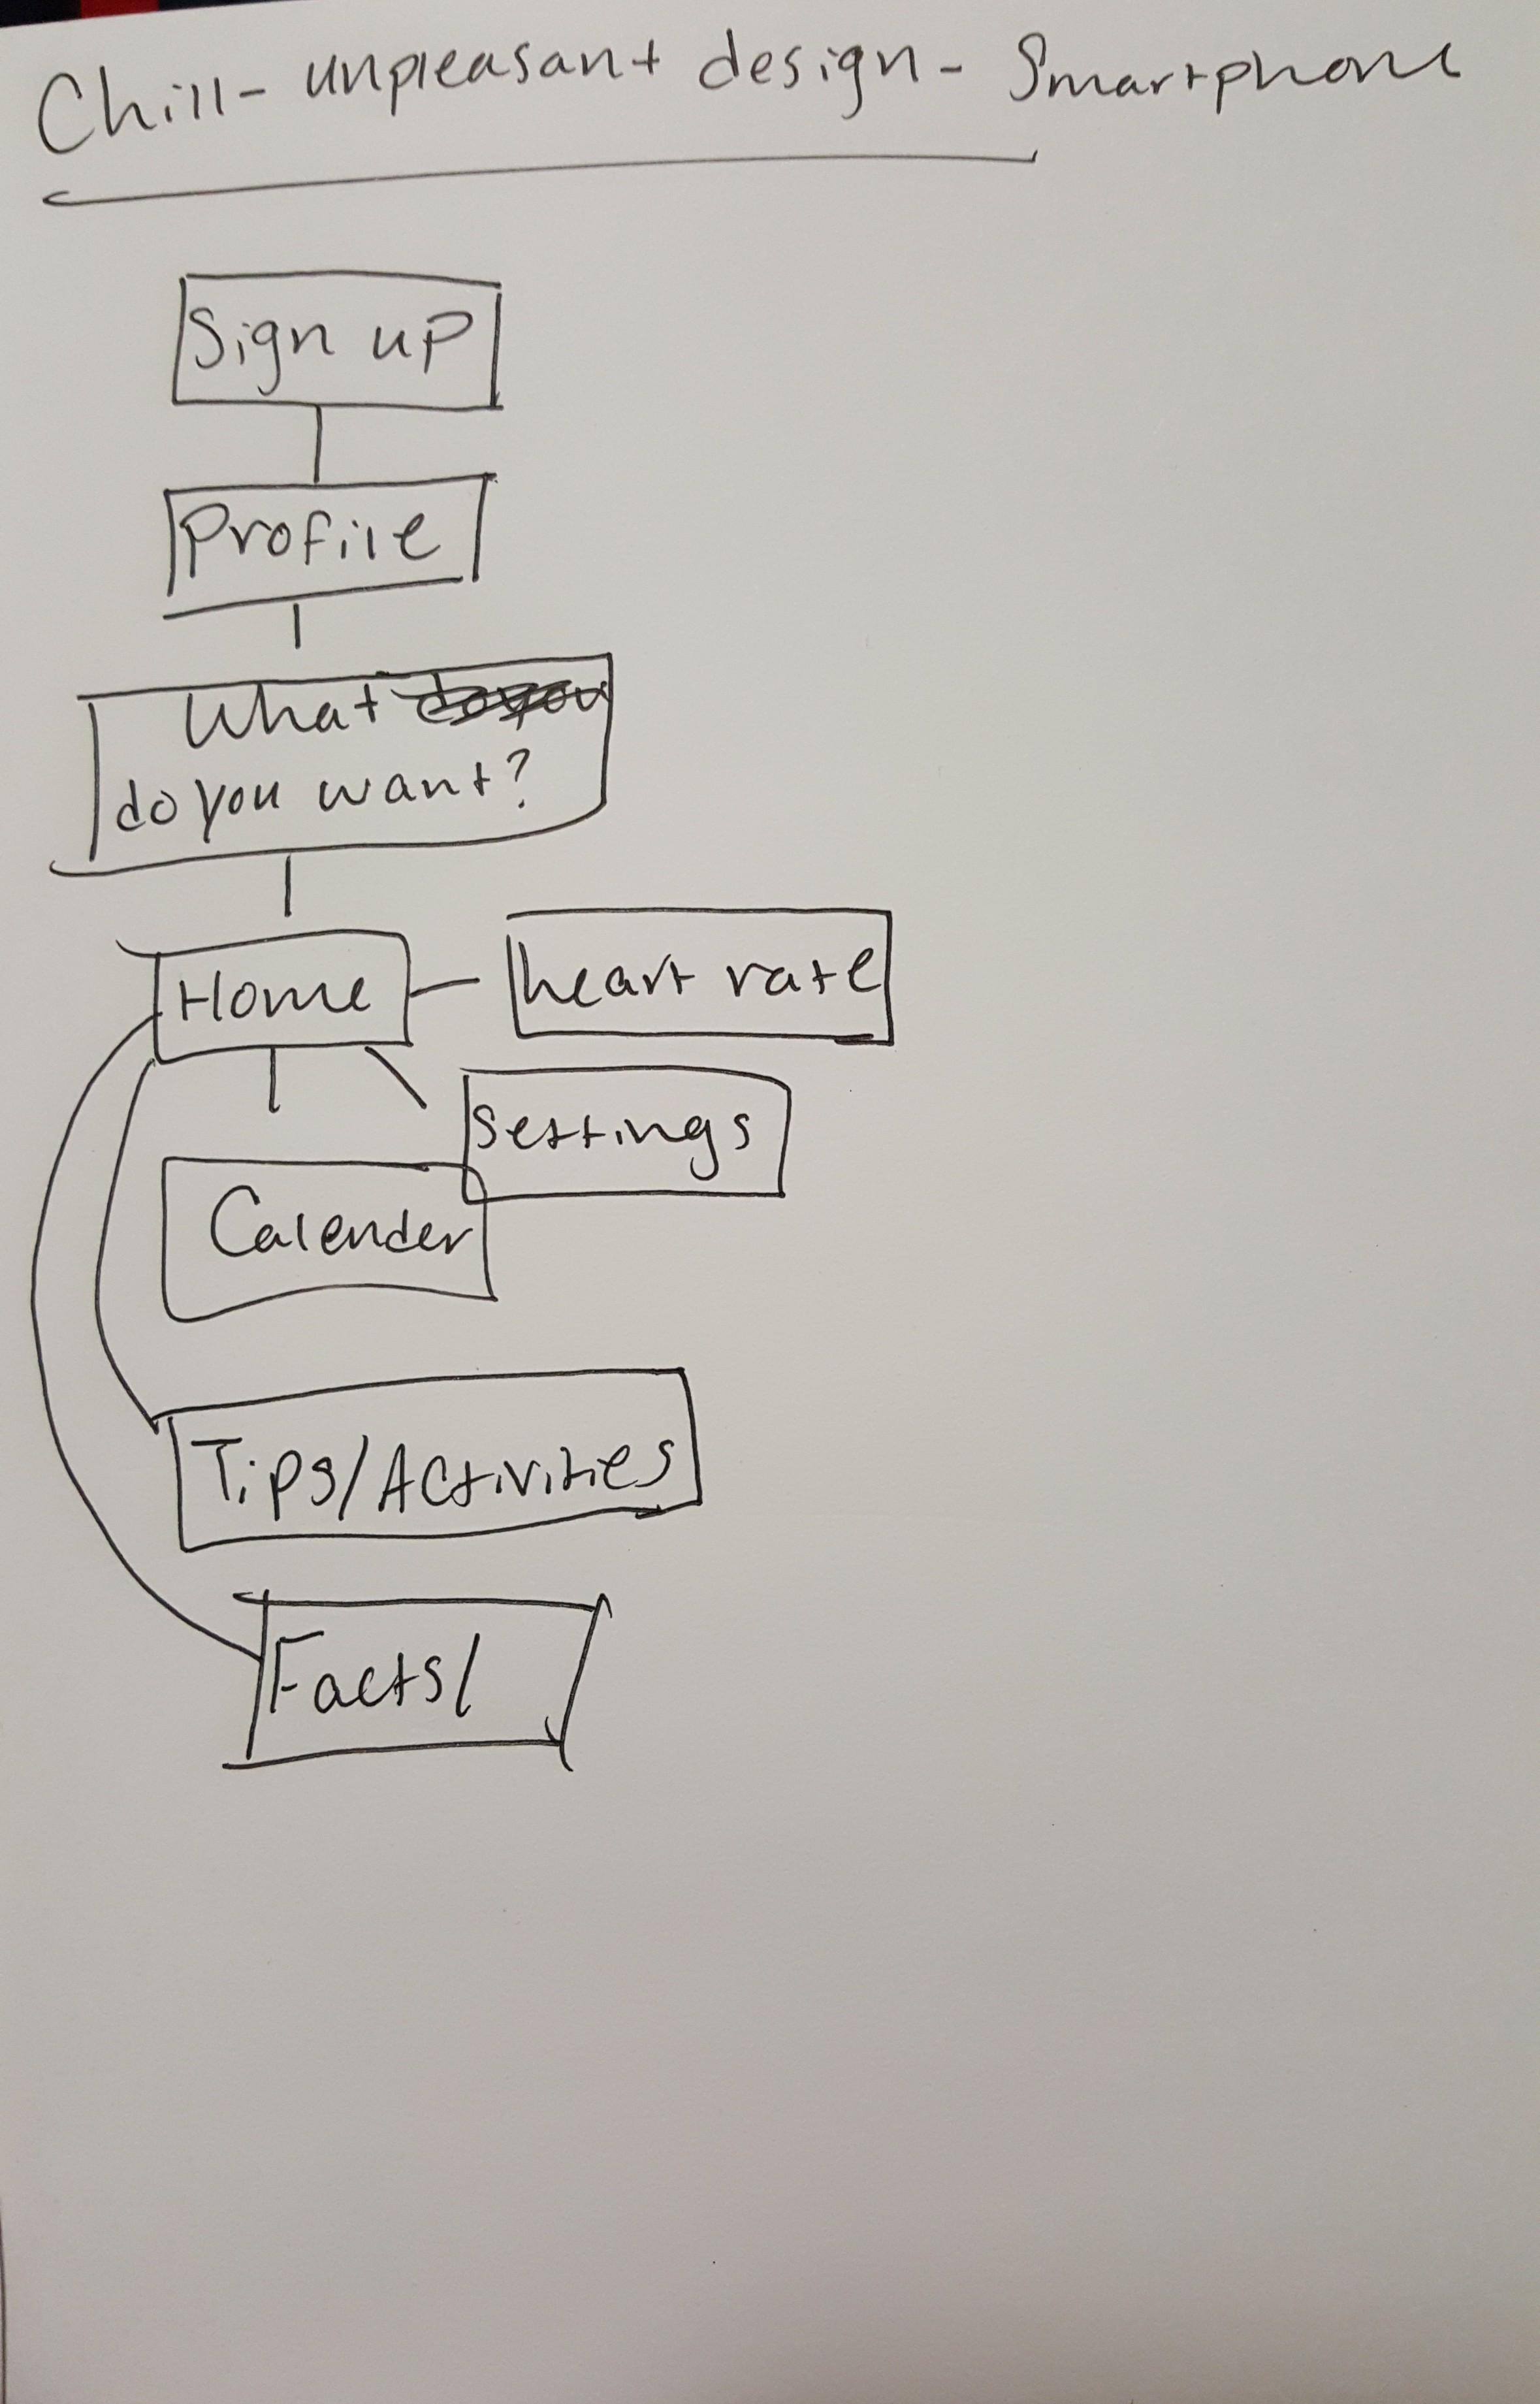 Chill - unpleasant design - Smartphone
Sign up
Profile
What
do you want?
Home
heart rate
Settings
Calender
Tips/Activities
Facts/